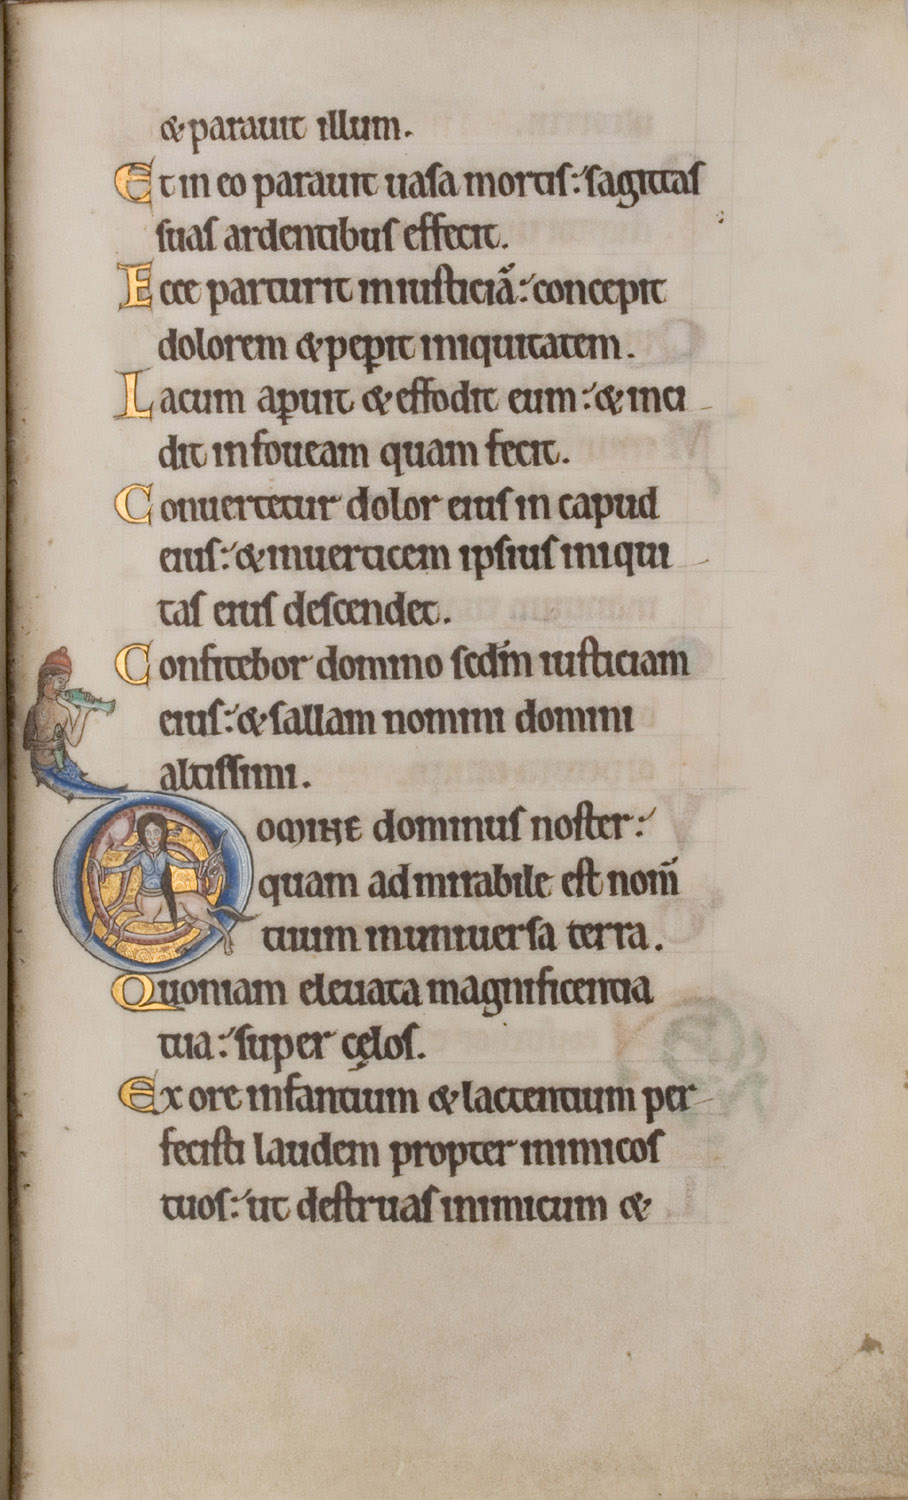 & parauit illum.
Et in eo parauit uasa mortis: sagittas
suas ardentibus effecit.
Ecce parturit iniusticiā: concepit
dolorem & peꝑit iniquitatem.
Lacum aꝑuit & effodit eum: & inci
dit in foueam quam fecit.
Conuertetur dolor eius in capud
eius: & inuerticem ipsius iniqui
tas eius descendet.
Confitebor domino scd̄m iusticiam
eius: & sallam nomini domini
altissimi.
Domine dominus noster:
quam admirabile est nom̄
tuum in uniuersa terra.
Quoniam eleuata magnificentia
tua: super cęlos.
Ex ore infantium & lactentium per
fecisti laudem propter inimicos
tuos: ut destruas inimicum &